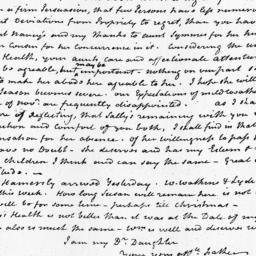 a firm Persuasion, that few Persons have less numerou
Deviations from Propriety to regret, than you hav
Nancy's and my Thanks to aunt Symmes for her
Cousin for her Concurrence in it. Considering the
Health, your aunts Care and affectionate attention
be agreable, may be important - nothing on my part
to make her abode here agreable to her. I hope she will
Season becomes severe - our Expectations of mild weather
of Nov.r are frequently disappointed. as I sha
of deflecting, that Sally's remaining with you
and Comfort of you both, I shall find in that
for her absence. of her willingness to
no Doubt - she deserves and has my Esteem &
children I think and can say the same - Great
Hamersly arrived Yesterday. W. Watkins & Lyde
this week. How long Susan will remain here is not
will be for some time - perhaps till Christmas -
Health is not better than it was at the Date of my
also is much the same - Wm is well and deserves
I am my Dr Daughter
Your very aff.te Father